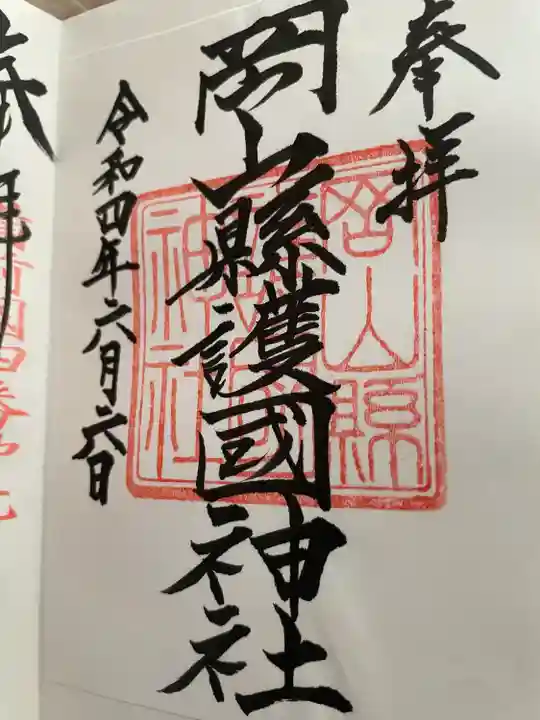 奉拝
岡山縣護國神社
岡山県
護國
神社
令和四年六月六日
拝